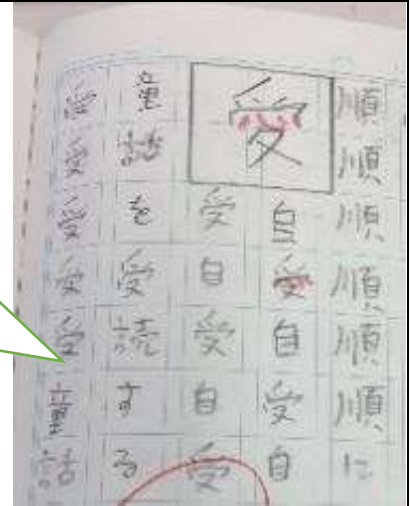 順順順順順順に
愛
自愛自愛自
愛自愛自愛
童話を愛読する
愛愛愛愛愛童話